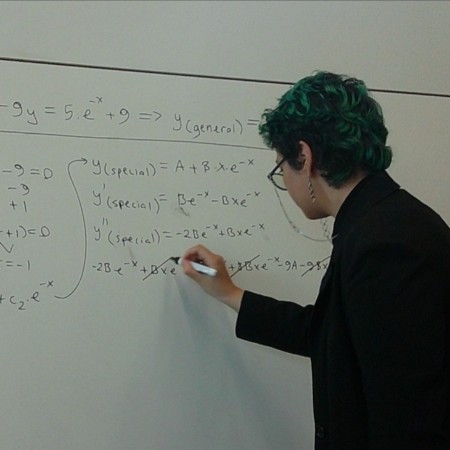 -9y = 5.e^-x +9 => y(general) =
-9=0
-9
+1
+1)=0
=-1
+ c2.e^-x
y(special) = A + B.x.e^-x
y'(special) = Be^-x - Bxe^-x
y''(special) = -2Be^-x + Bxe^-x
-2B.e^-x + Bxe + 8Bxe^-x -9A -9Bx